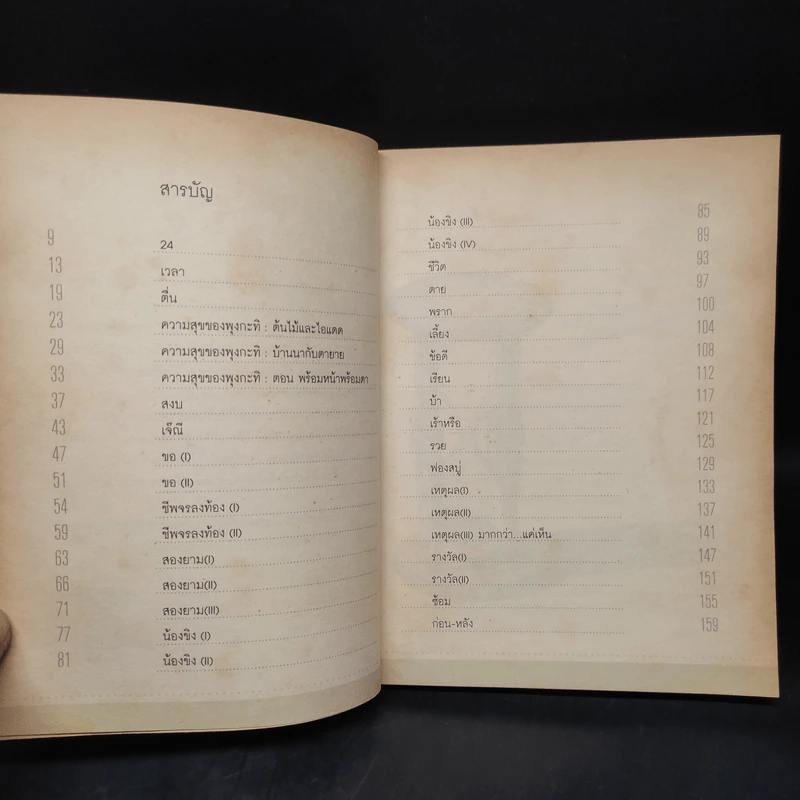 สารบัญ
9 24
13 เวลา
19 ตื่น
23 ความสุขของพุงกะทิ : ต้นไม้และไอแดด
29 ความสุขของพุงกะทิ : บ้านนากับตายาย
33 ความสุขของพุงกะทิ : ตอน พร้อมหน้าพร้อมตา
37 สงบ
43 เจ๊ณี
47 ขอ (I)
51 ขอ (II)
54 ชีพจรลงท้อง (I)
59 ชีพจรลงท้อง (II)
63 สองยาม(I)
66 สองยาม(II)
71 สองยาม(III)
77 น้องขิง (I)
81 น้องขิง (II)
น้องขิง (III) 85
น้องขิง (IV) 89
ชีวิต 93
ตาย 97
พราก 100
เลี้ยง 104
ข้อดี 108
เรียน 112
บ้า 117
เร้าหรือ 121
รวย 125
ฟองสบู่ 129
เหตุผล(I) 133
เหตุผล(II) 137
เหตุผล(III) มากกว่า...แค่เห็น 141
รางวัล(I) 147
รางวัล(II) 151
ซ้อม 155
ก่อน-หลัง 159